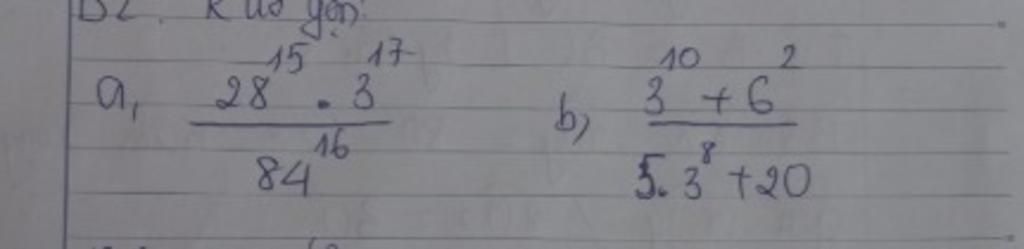 B2. Rút gọn:
a, \frac{28^{15} . 3^{17}}{84^{16}} b, \frac{3^{10} + 6^{2}}{5. 3^{8} + 20}